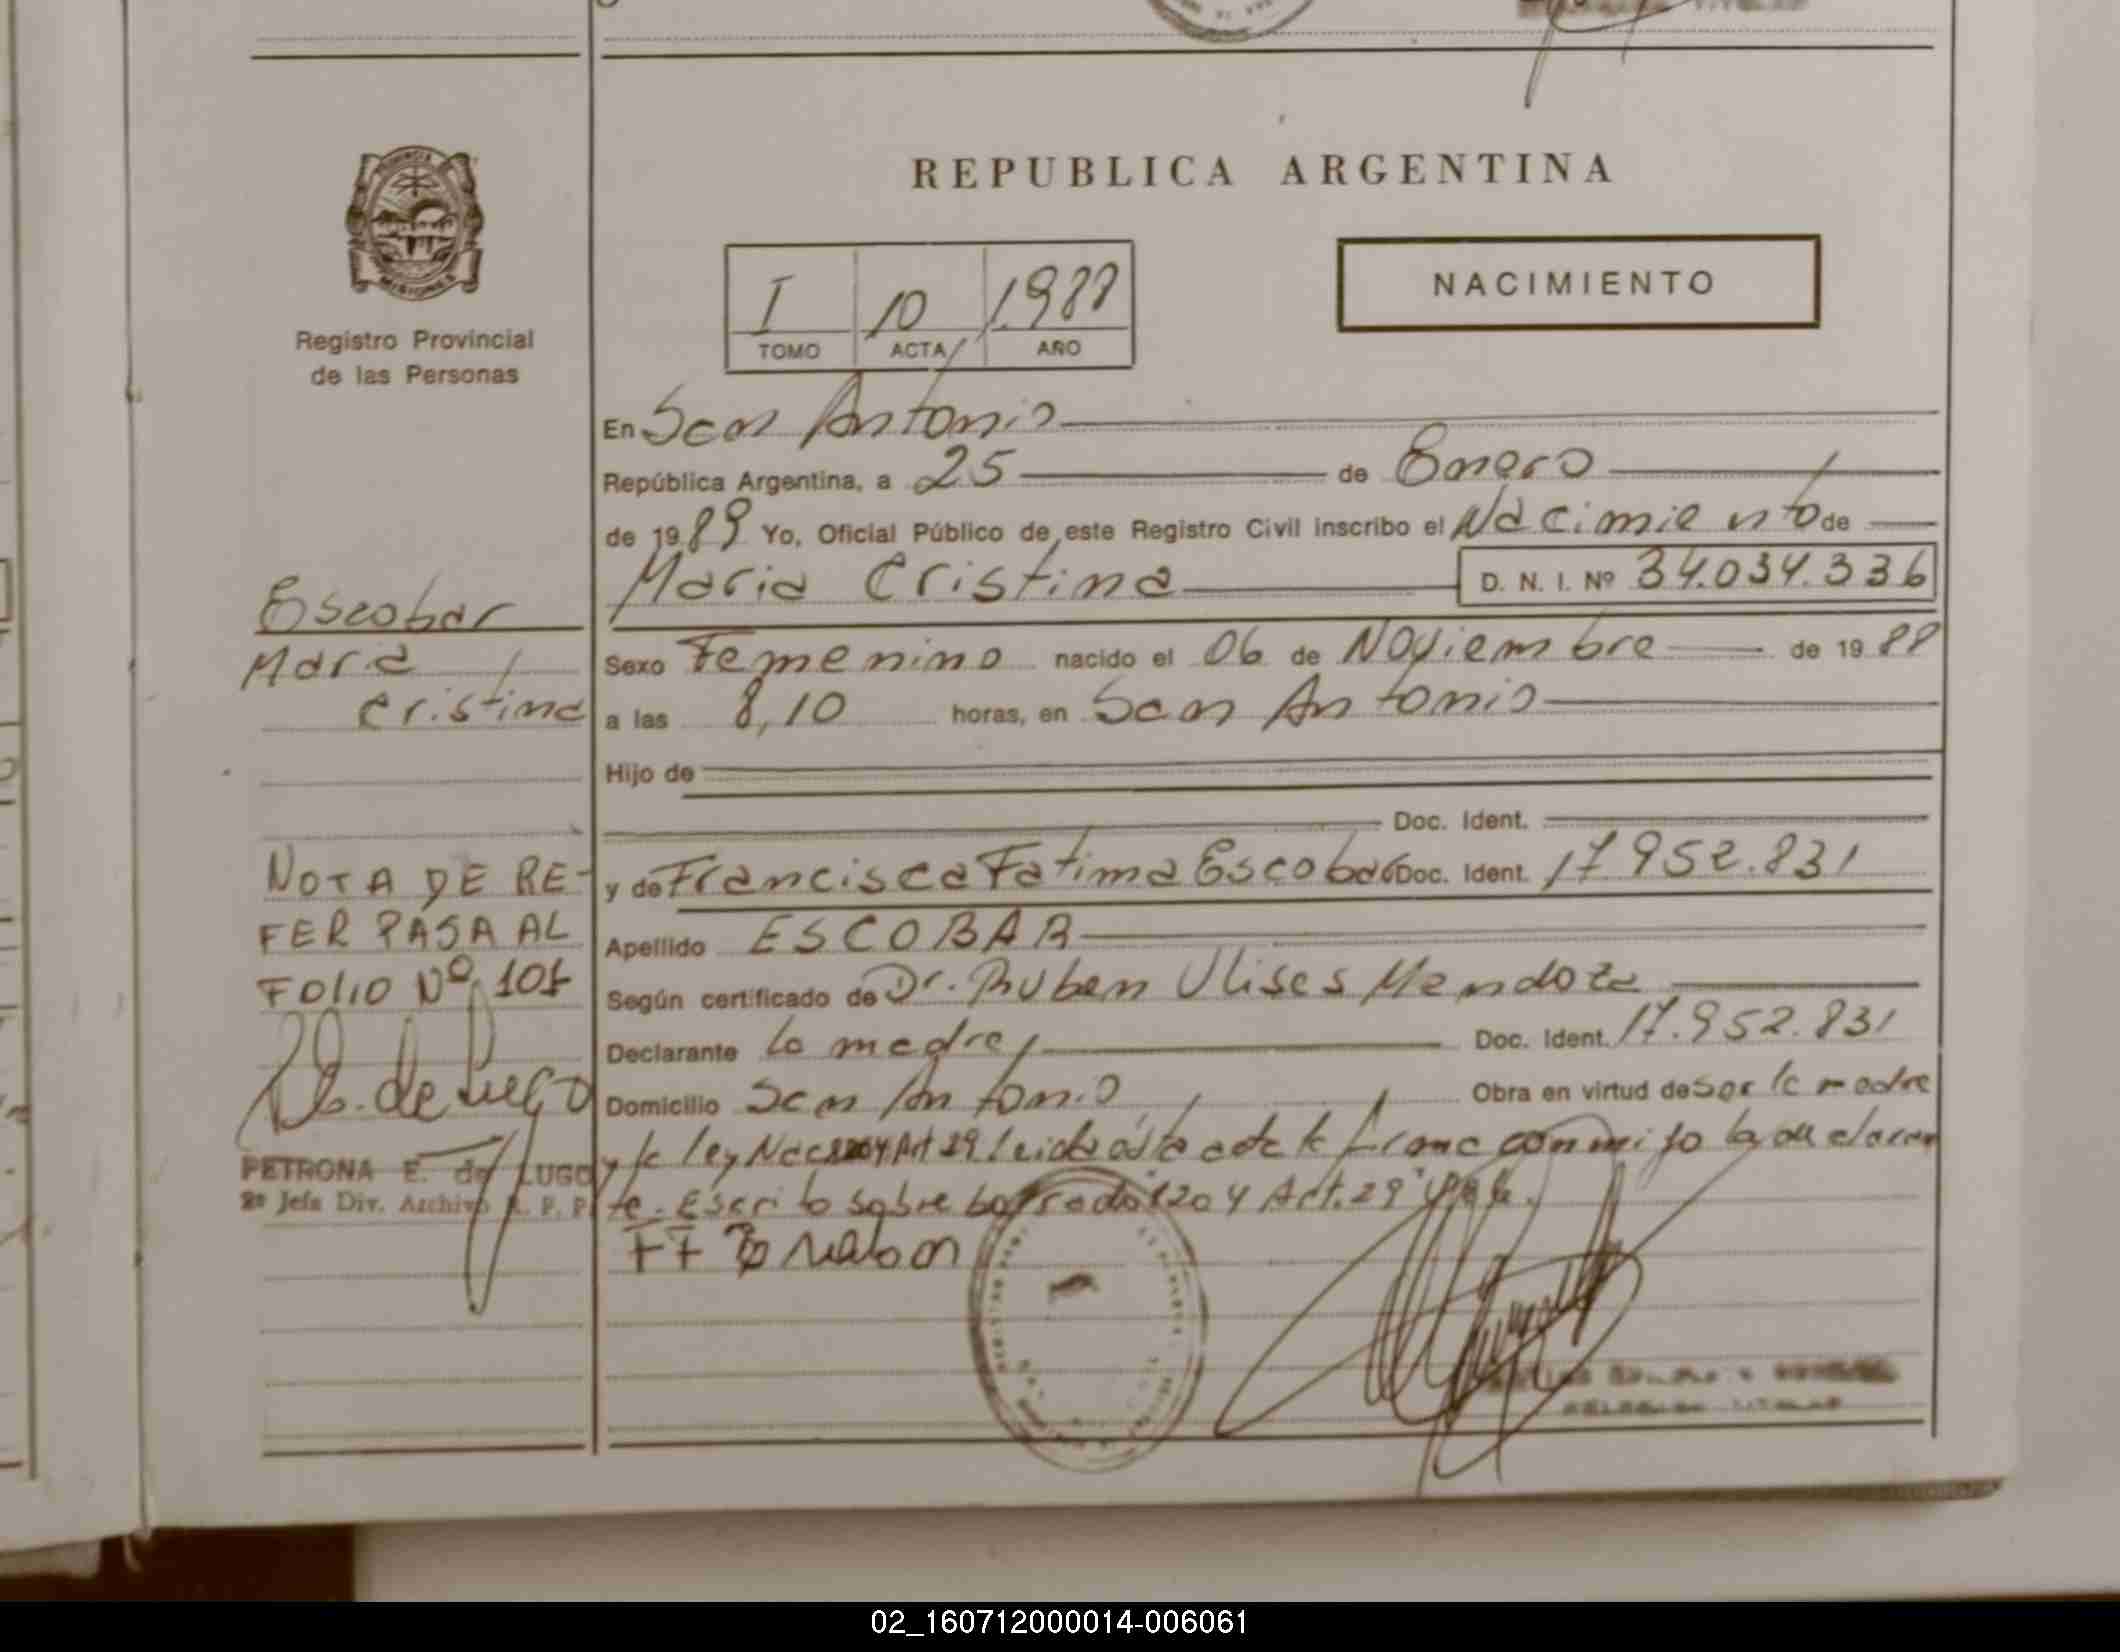 REPUBLICA ARGENTINA
PROVINCIA
MISIONES
Registro Provincial
de las Personas
I 10 1.988
TOMO ACTA AÑO
NACIMIENTO
En San Antonio
República Argentina, a 25 de Enero
de 1989 Yo, Oficial Público de este Registro Civil inscribo el Nacimiento de
Maria Cristina D. N. I. Nº 34.034.336
Escobar
Mara
Cristina
Sexo Femenino nacido el 06 de Noviembre de 1988
a las 8,10 horas, en San Antonio
Hijo de
Doc. Ident.
y de Francisca Fatima Escobar Doc. Ident. 17.952.831
Apellido ESCOBAR
Según certificado de Dr. Ruben Ulises Mendoza
Declarante la madre Doc. Ident. 17.952.831
Domicilio San Antonio Obra en virtud de ser la madre
y la ley Nac 8204 Art 29 leida esta acta la firma conmigo la declaran
te. Escrito sobre borrado 8204 Art. 29
NOTA DE RE-
FER PASA AL
FOLIO Nº 101
PETRONA E. de LUGO
2º Jefa Div. Archivo R. P. P.
02_160712000014-006061